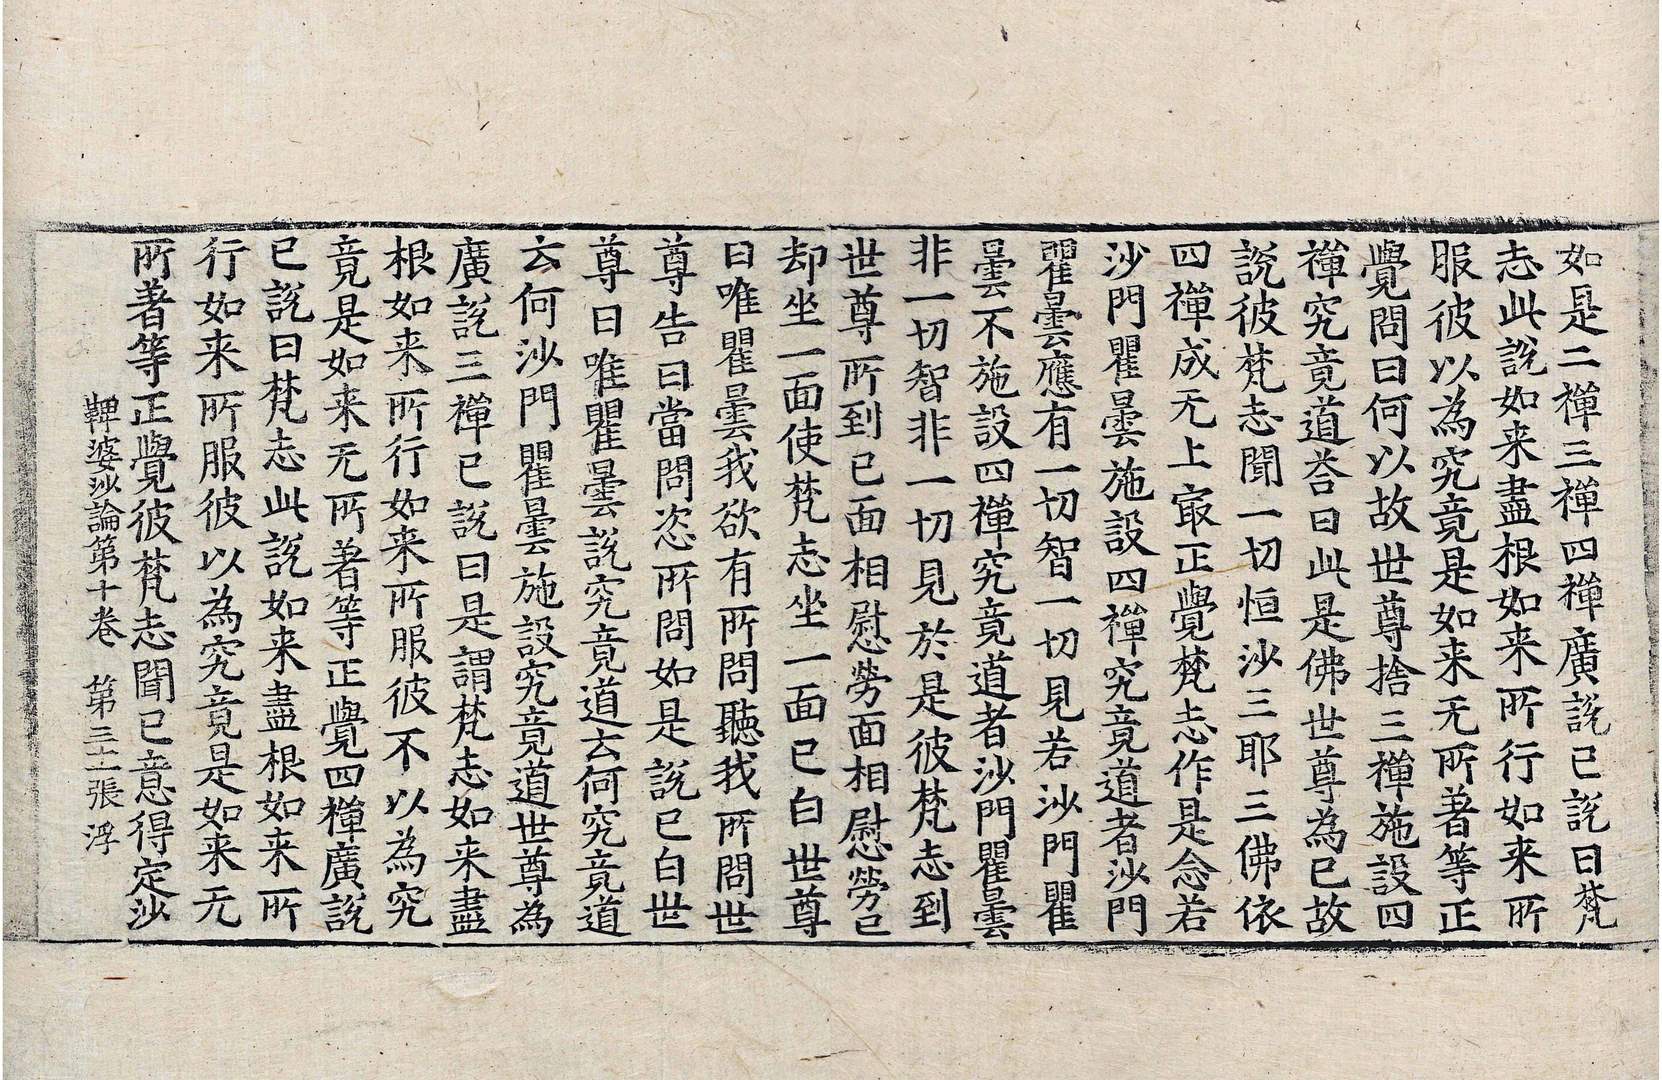 如是二禪三禪四禪廣說已說曰梵
志此說如来盡根如来所行如来所
服彼以為究竟是如来无所著等正
覺問曰何以故世尊捨三禪施設四
禪究竟道荅曰此是佛世尊為已故
說彼梵志聞一切恒沙三耶三佛依
四禪成无上㝡正覺梵志作是念若
沙門瞿曇施設四禪究竟道者沙門
瞿曇應有一切智一切見若沙門瞿
曇不施設四禪究竟道者沙門瞿曇
非一切智非一切見於是彼梵志到
世尊所到已面相慰勞面相慰勞已
却坐一面使梵志坐一面已白世尊
曰唯瞿曇我欲有所問聽我所問世
尊告曰當問恣所問如是說已白世
尊曰唯瞿曇說究竟道云何究竟道
云何沙門瞿曇施設究竟道世尊為
廣說三禪已說曰是謂梵志如来盡
根如来所行如来所服彼不以為究
竟是如来无所著等正覺四禪廣說
已說曰梵志此說如来盡根如来所
行如来所服彼以為究竟是如来无
所著等正覺彼梵志聞已意得定沙
鞞婆沙論第十卷　第三十二張　浮